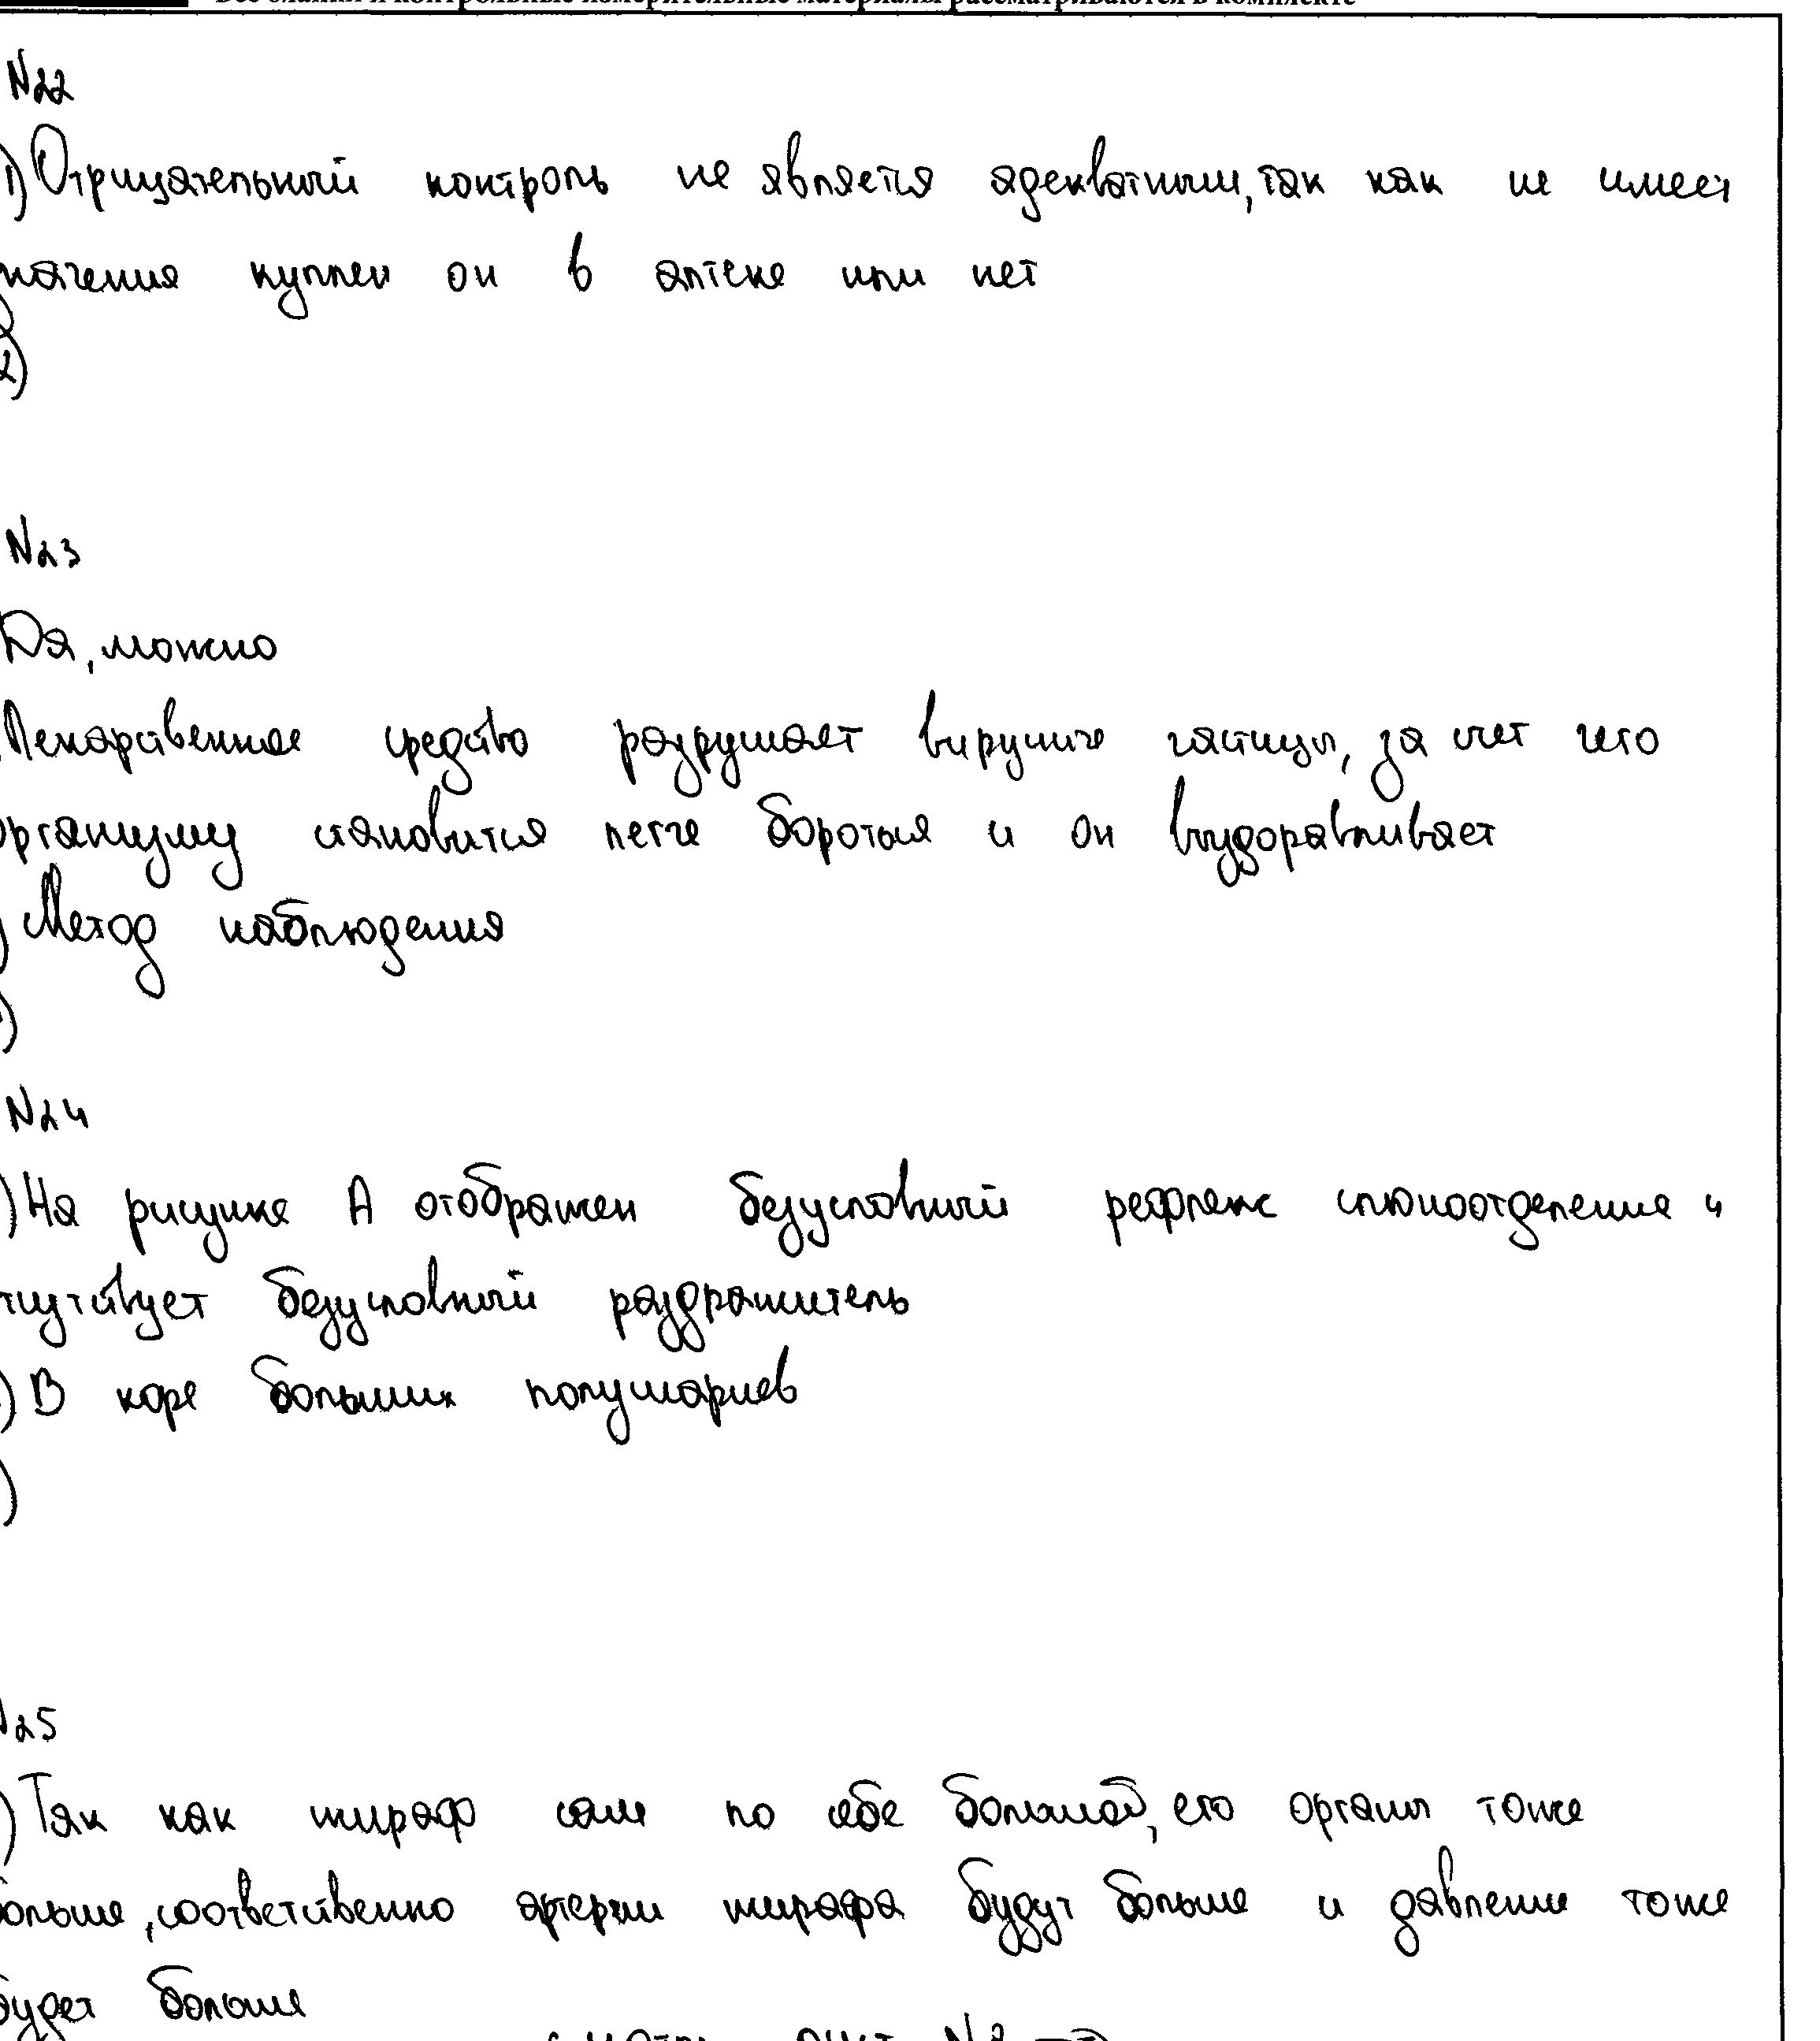 Все бланки и контрольные измерительные материалы рассматриваются в комплекте
N22
1) Отрицательный контроль не является адекватным, так как не имеет
значения куплен он в аптеке или нет
2)
N23
Да, можно
Лекарственное средство разрушает вирусные частицы, за счет чего
организму становится легче бороться и он выздоравливает
) Метод наблюдения
)
N24
) На рисунке А отображен безусловный рефлекс слюноотделения и
тсутствует безусловный раздражитель
) В коре больших полушариев
)
N25
) Так как жираф сам по себе большой, его органы тоже
больше, соответственно артерии жирафа будут больше и давление тоже
будет больше